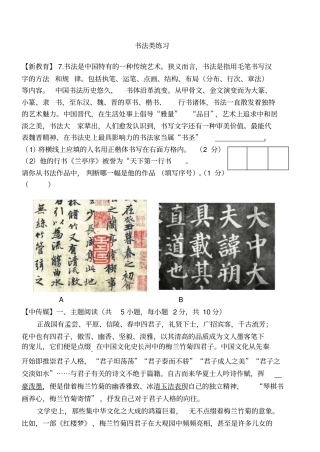 书法类练习
【新教育】7.书法是中国特有的一种传统艺术。狭义而言，书法是指用毛笔书写汉
字的方法 和规 律。包括执笔、运笔、点画、结构、布局（分布、行次、章法）
等内容。 中国书法历史悠久， 书体沿革流变。从甲骨文、金文演变而为大
小篆、隶 书，至东汉、魏、晋的草书、楷书、 行书诸体，书法一直散发着独特
的艺术魅力。中国晋代，在生活处事上倡导“雅量” “品目”，艺术上追求中和居
淡之美，书法大 家草出，人们愈发认识到，书写文字，还有一种审美价值。最能代
表魏晋精神、在书法史上最具影响力的书法家当属“书圣”
（1）将横线上应填的人名用正楷体书写在右面方格内。 （2 分）
（2）他的行书《兰亭序》被誉为“天下第一行书 。
请你从书法作品中， 判断哪一幅是他的作品 （填写序号）。（1 分）
（ ）
大中大
夫諱朔
具載其
A B
【中传媒】一、主题阅读（共 5 小题，每小题 2 分，共 10 分）
正战国有孟尝、平原、信陵、春申四君子，礼贤下士，广招宾客，千古流芳；
花中也有四君子，傲雪、幽香、坚毅、淡雅，以其清高的品质成为文人墨客笔下
的宠儿，它们便是点缀 在中国文史长河中的梅兰竹菊四君子。中国文化从先秦
开始即推崇君子人格， “君子坦荡荡” “君子泰而不骄” “君子成人之美” “君子之
交淡如水”……与君子有关的词句绝于篇章。自古以来华夏士人吟诗作赋，挥
豪泼墨，便是借着梅兰竹菊的幽香雅致、冰清玉洁表明自己的君子精神， “琴棋书
画养心，梅兰竹菊寄情” ，抒发对于君子人格的向往。
文学史上，那些集中华文化之大成的鸿篇巨着， 无不点缀着梅兰竹菊的意象。
比如，一部《红楼梦》，梅兰竹菊四君子在大观园中频频亮相，甚至是许多儿女的